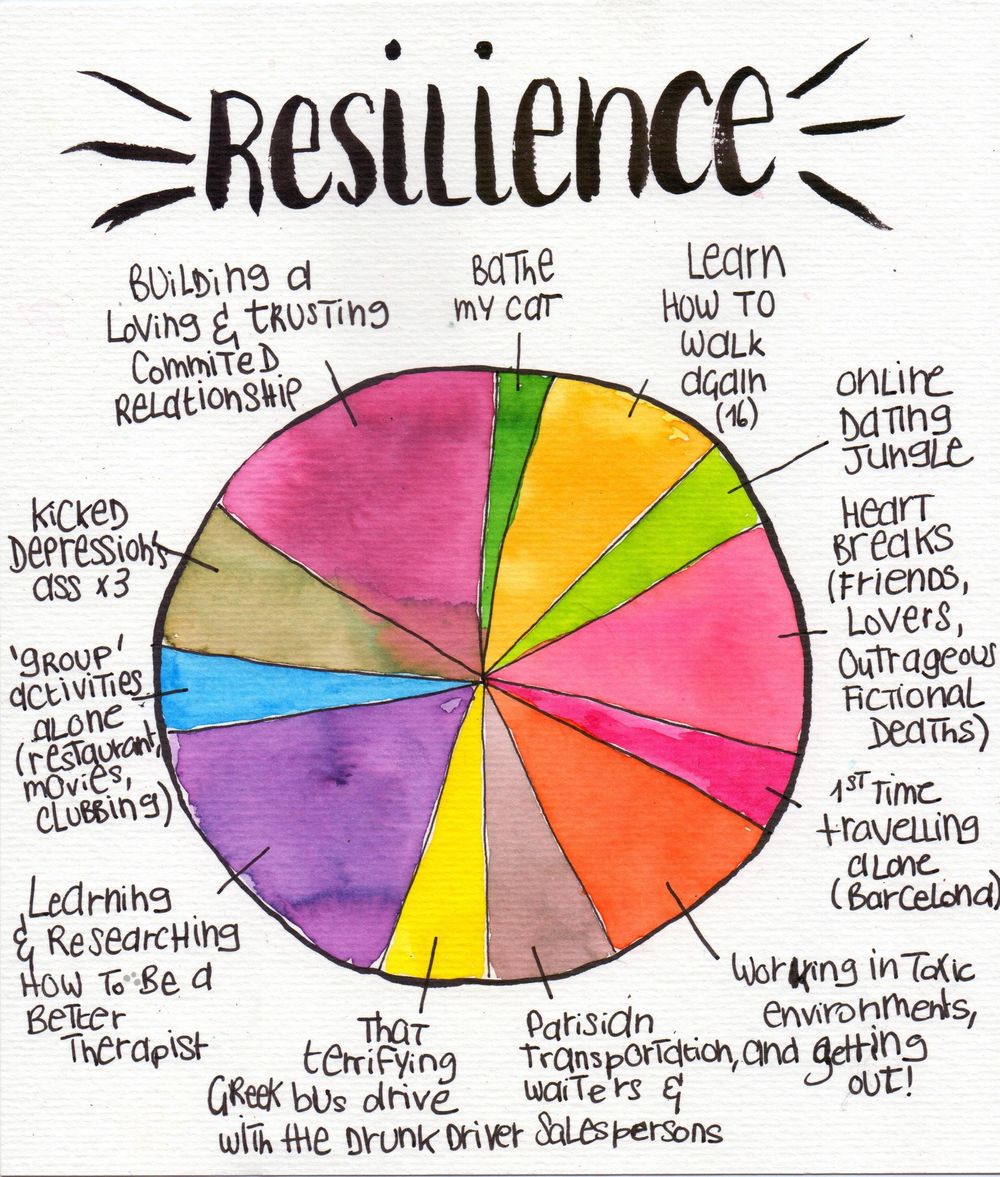 Resilience
Building a
Loving & trusting
Commited
Relationship
Bathe
my cat
Learn
How to
walk
again
(16)
Online
Dating
Jungle
Heart
Breaks
(Friends,
Lovers,
Outrageous
Fictional
Deaths)
1st Time
travelling
alone
(Barcelona)
Working in Toxic
environments,
and getting
out!
Parisian
Transportation,
waiters &
Salespersons
That
terrifying
Greek bus drive
with the Drunk Driver
Learning
& Researching
How To Be a
Better
Therapist
'group'
activities
alone
(restaurant,
movies,
clubbing)
Kicked
Depression's
ass x3